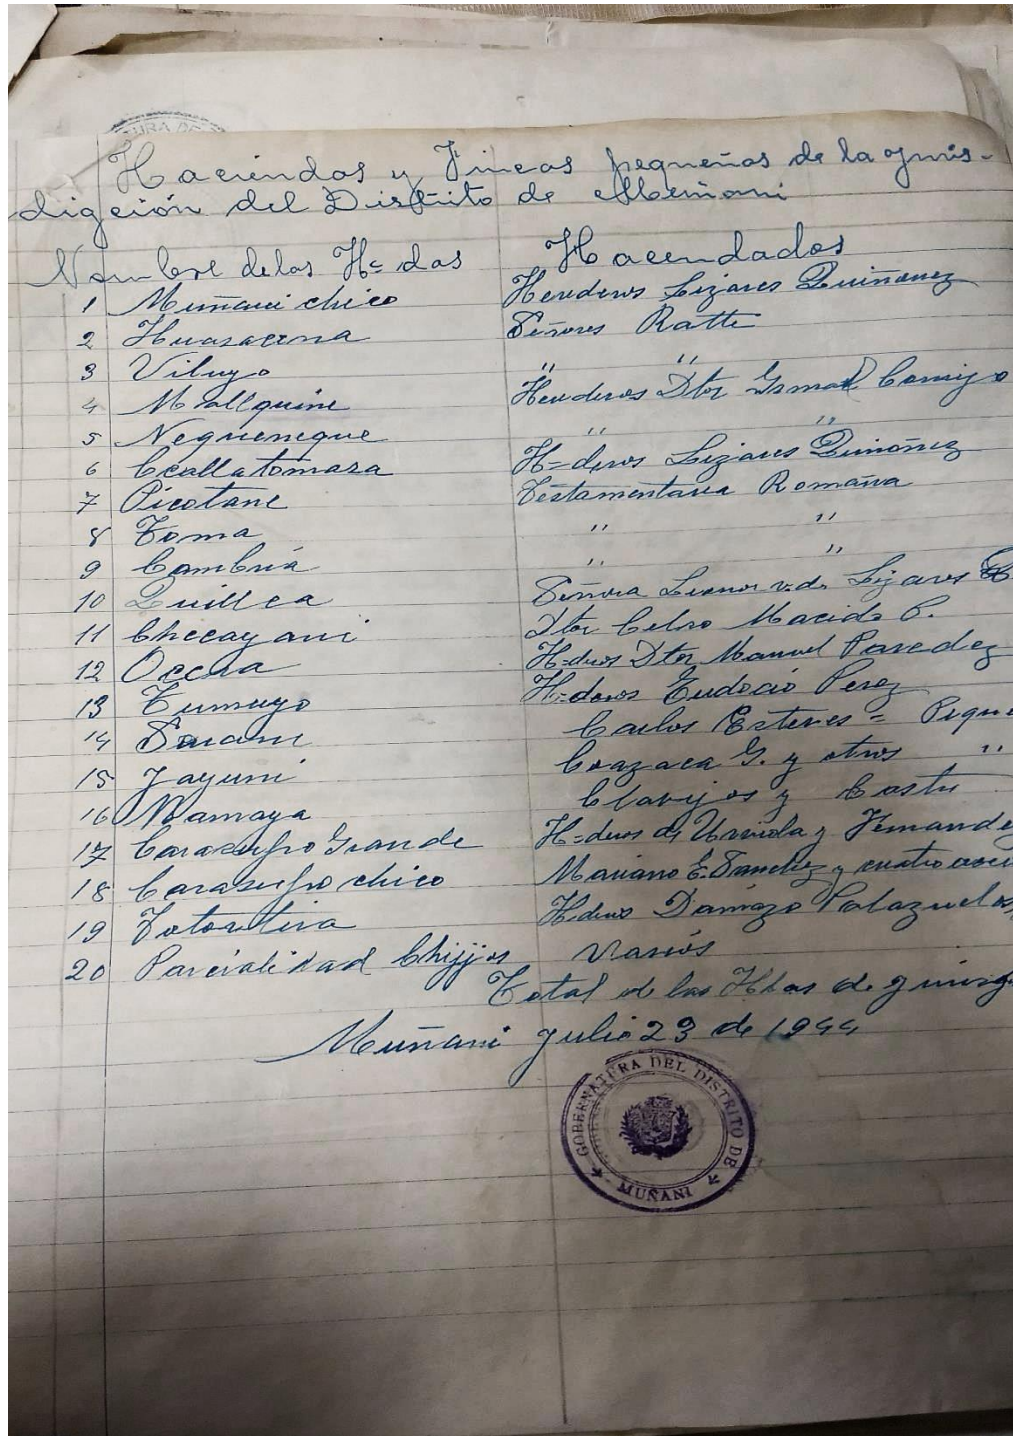 Haciendas y Fincas pequeñas de la juris-
digción del Distrito de Muñani
Nombre de las H=das Hacendados
1 Muñani chico Herederos Lizares Quiñonez
2 Huasacona Señores Ratti
3 Viluyo " "
4 Mallquine Herederos Dtor Ismael Cornejo
5 Nequeneque " "
6 Ccallatomasa H=deros Lizares Quiñónez
7 Picotane Testamentaria Romaña
8 Toma " "
9 Cambria " "
10 Quillca Señora Leonor v.da Lizares
11 Checayani Dtor Celso Macido P.
12 Occra H=deros Dtor Manuel Paredez
13 Tumuyo H=deros Eudocio Perez
14 Carlos Esteves = Peque
15 Jayuni Coazaca G. y otros "
16 Mamaya Clavijos y Castu
17 Carasupo Grande H=deros de Urviola y Fernande
18 Carasupo chico Mariano E. Sanchez y cuatro
19 H=deros Damazo Palazuelos
20 Parcialidad Chijjos Varios
Total de las Hdas de
Muñani Julio 23 de 1944
GOBERNATURA DEL DISTRITO DE
MUÑANI